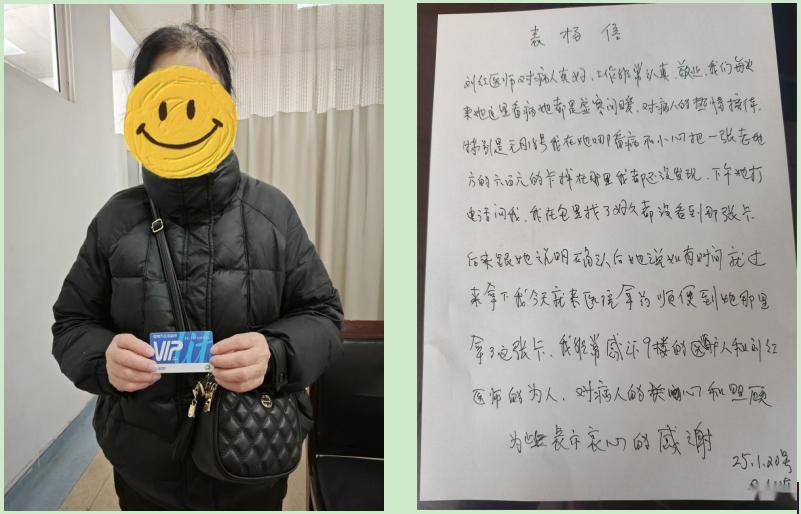 VIP
表扬信
刘红医师对病人友好、工作非常认真、敬业、我们每次
来她这里看病她都是嘘寒问暖、对病人的热情接待。
特别是元月18号我在她那看病不小心把一张老地
方的六百元的卡掉在那里我都还没发现、下午她打
电话问我、我在包里找了好久都没看到那张卡
后来跟她说明确认后她说如有时间就过
来拿下我今天就来医院拿药顺便到她那里
拿了这张卡、我非常感谢9楼的医护人和刘红
医师的为人、对病人的关心和照顾
为此表示衷心的感谢
25.1.20号